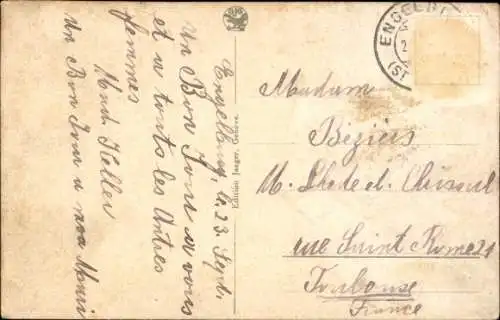 Engelburg, le 23. Sept.
Un Bon Jour a vous
et a touts les Antres
femmes
Maid Keller
Un Bon Jour a
Edition Jaeger, Genève.
ENGELBU
(ST
Madam
Béziers
rue Saint Rome 21
Toulouse
France